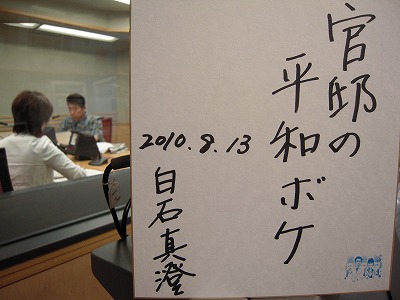 官邸の
平和ボケ
2010.9.13
白石真澄